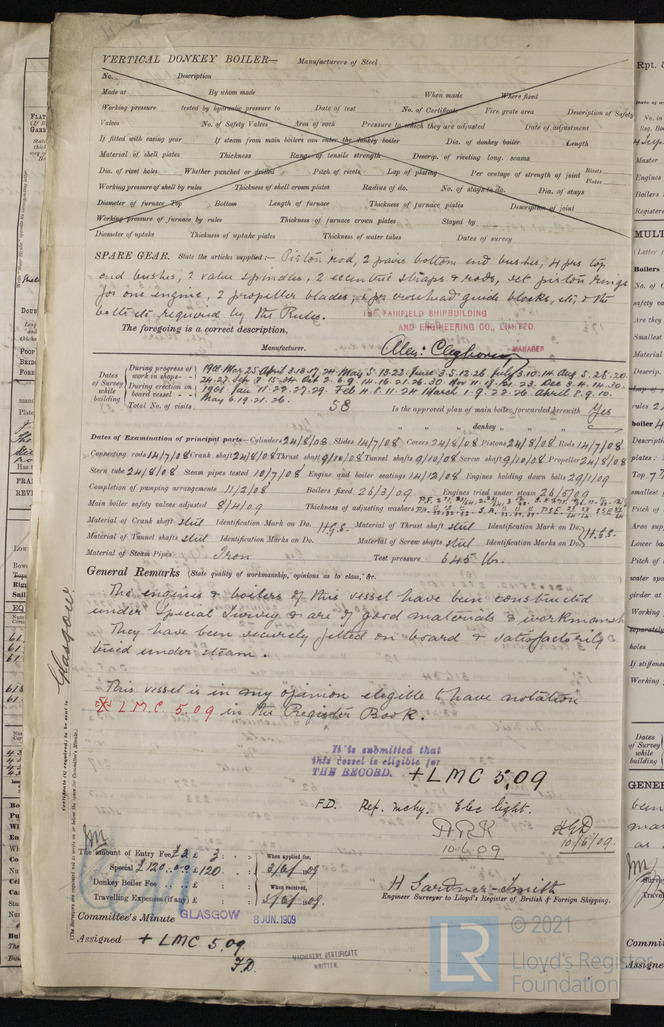 VERTICAL DONKEY BOILER— Manufacturers of Steel
No. Description
Made at By whom made When made Where fixed
Working pressure tested by hydraulic pressure to Date of test No. of Certificate Fire grate area Description of Safety
Valves No. of Safety Valves Area of each Pressure to which they are adjusted Date of adjustment
If fitted with easing gear If steam from main boilers can enter the donkey boiler Dia. of donkey boiler Length
Material of shell plates Thickness Range of tensile strength Descrip. of riveting long. seams
Dia. of rivet holes Whether punched or drilled Pitch of rivets Lap of plating Per centage of strength of joint Rivets Plates
Working pressure of shell by rules Thickness of shell crown plates Radius of do. No. of stays to do. Dia. of stays
Diameter of furnace Top Bottom Length of furnace Thickness of furnace plates Description of joint
Working pressure of furnace by rules Thickness of furnace crown plates Stayed by
Diameter of uptake Thickness of uptake plates Thickness of water tubes Dates of survey
SPARE GEAR. State the articles supplied:— Piston rod, 2 pairs bottom end bushes, 4 prs top
end bushes, 2 valve spindles, 2 eccentric straps & rods, set piston rings
for one engine, 2 propeller blades, crosshead guide blocks, etc & the
bolts etc required by the Rules.
The foregoing is a correct description,
THE FAIRFIELD SHIPBUILDING
AND ENGINEERING CO., LIMITED.
Manufacturer. Alex: Cleghorn
MANAGER
Dates of Survey while building
During progress of work in shops - -
During erection on board vessel - - -
Total No. of visits 58
May 6.19.21.26.
Is the approved plan of main boiler forwarded herewith Yes
" " " donkey " " "
Dates of Examination of principal parts—Cylinders 24/8/08 Slides 14/7/08 Covers 24/8/08 Pistons 24/8/08 Rods 14/7/08
Connecting rods 14/7/08 Crank shaft 24/8/08 Thrust shaft 9/10/08 Tunnel shafts 9/10/08 Screw shaft 9/10/08 Propeller 24/8/08
Stern tube 24/8/08 Steam pipes tested 10/7/08 Engine and boiler seatings 14/12/08 Engines holding down bolts 29/1/09
Completion of pumping arrangements 11/2/08 Boilers fixed 26/3/09 Engines tried under steam 26/5/09
Main boiler safety valves adjusted 8/4/09 Thickness of adjusting washers
Material of Crank shaft steel Identification Mark on Do. H.G.S. Material of Thrust shaft steel Identification Mark on Do. H.G.S.
Material of Tunnel shafts steel Identification Marks on Do. Material of Screw shafts steel Identification Marks on Do.
Material of Steam Pipes Iron Test pressure 645 lbs.
General Remarks (State quality of workmanship, opinions as to class, &c.
The engines & boilers of this vessel have been constructed
under special survey & are of good materials & workmansh
They have been securely fitted on board & satisfactorily
tried under steam.
This vessel is in my opinion eligible to have notation
+ L.M.C. 5.09 in the Register Book.
It is submitted that
this vessel is eligible for
THE RECORD. + LMC 5.09
F.D. Ref. mchy. Elec light.
10.6.09 10/6/09
The amount of Entry Fee £ 3 : : When applied for,
Special £ 120 : :
Donkey Boiler Fee £ : : When received,
Travelling Expenses (if any) £ : :
H Gardner-Smith
Engineer Surveyor to Lloyd's Register of British & Foreign Shipping.
Committee's Minute GLASGOW 8 JUN. 1909
Assigned + LMC 5.09
F.D.
MACHINERY CERTIFICATE
WRITTEN.
Glasgow.
Certificate (if required) to be sent to
(The Surveyors are requested not to write on or below the space for Committee's Minute.)
LR
© 2021
Lloyd's Register
Foundation